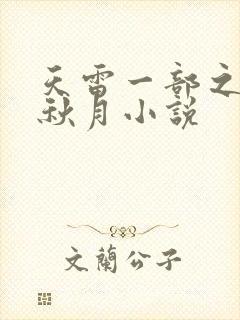 天雷一部之
秋月小說
文蘭公子